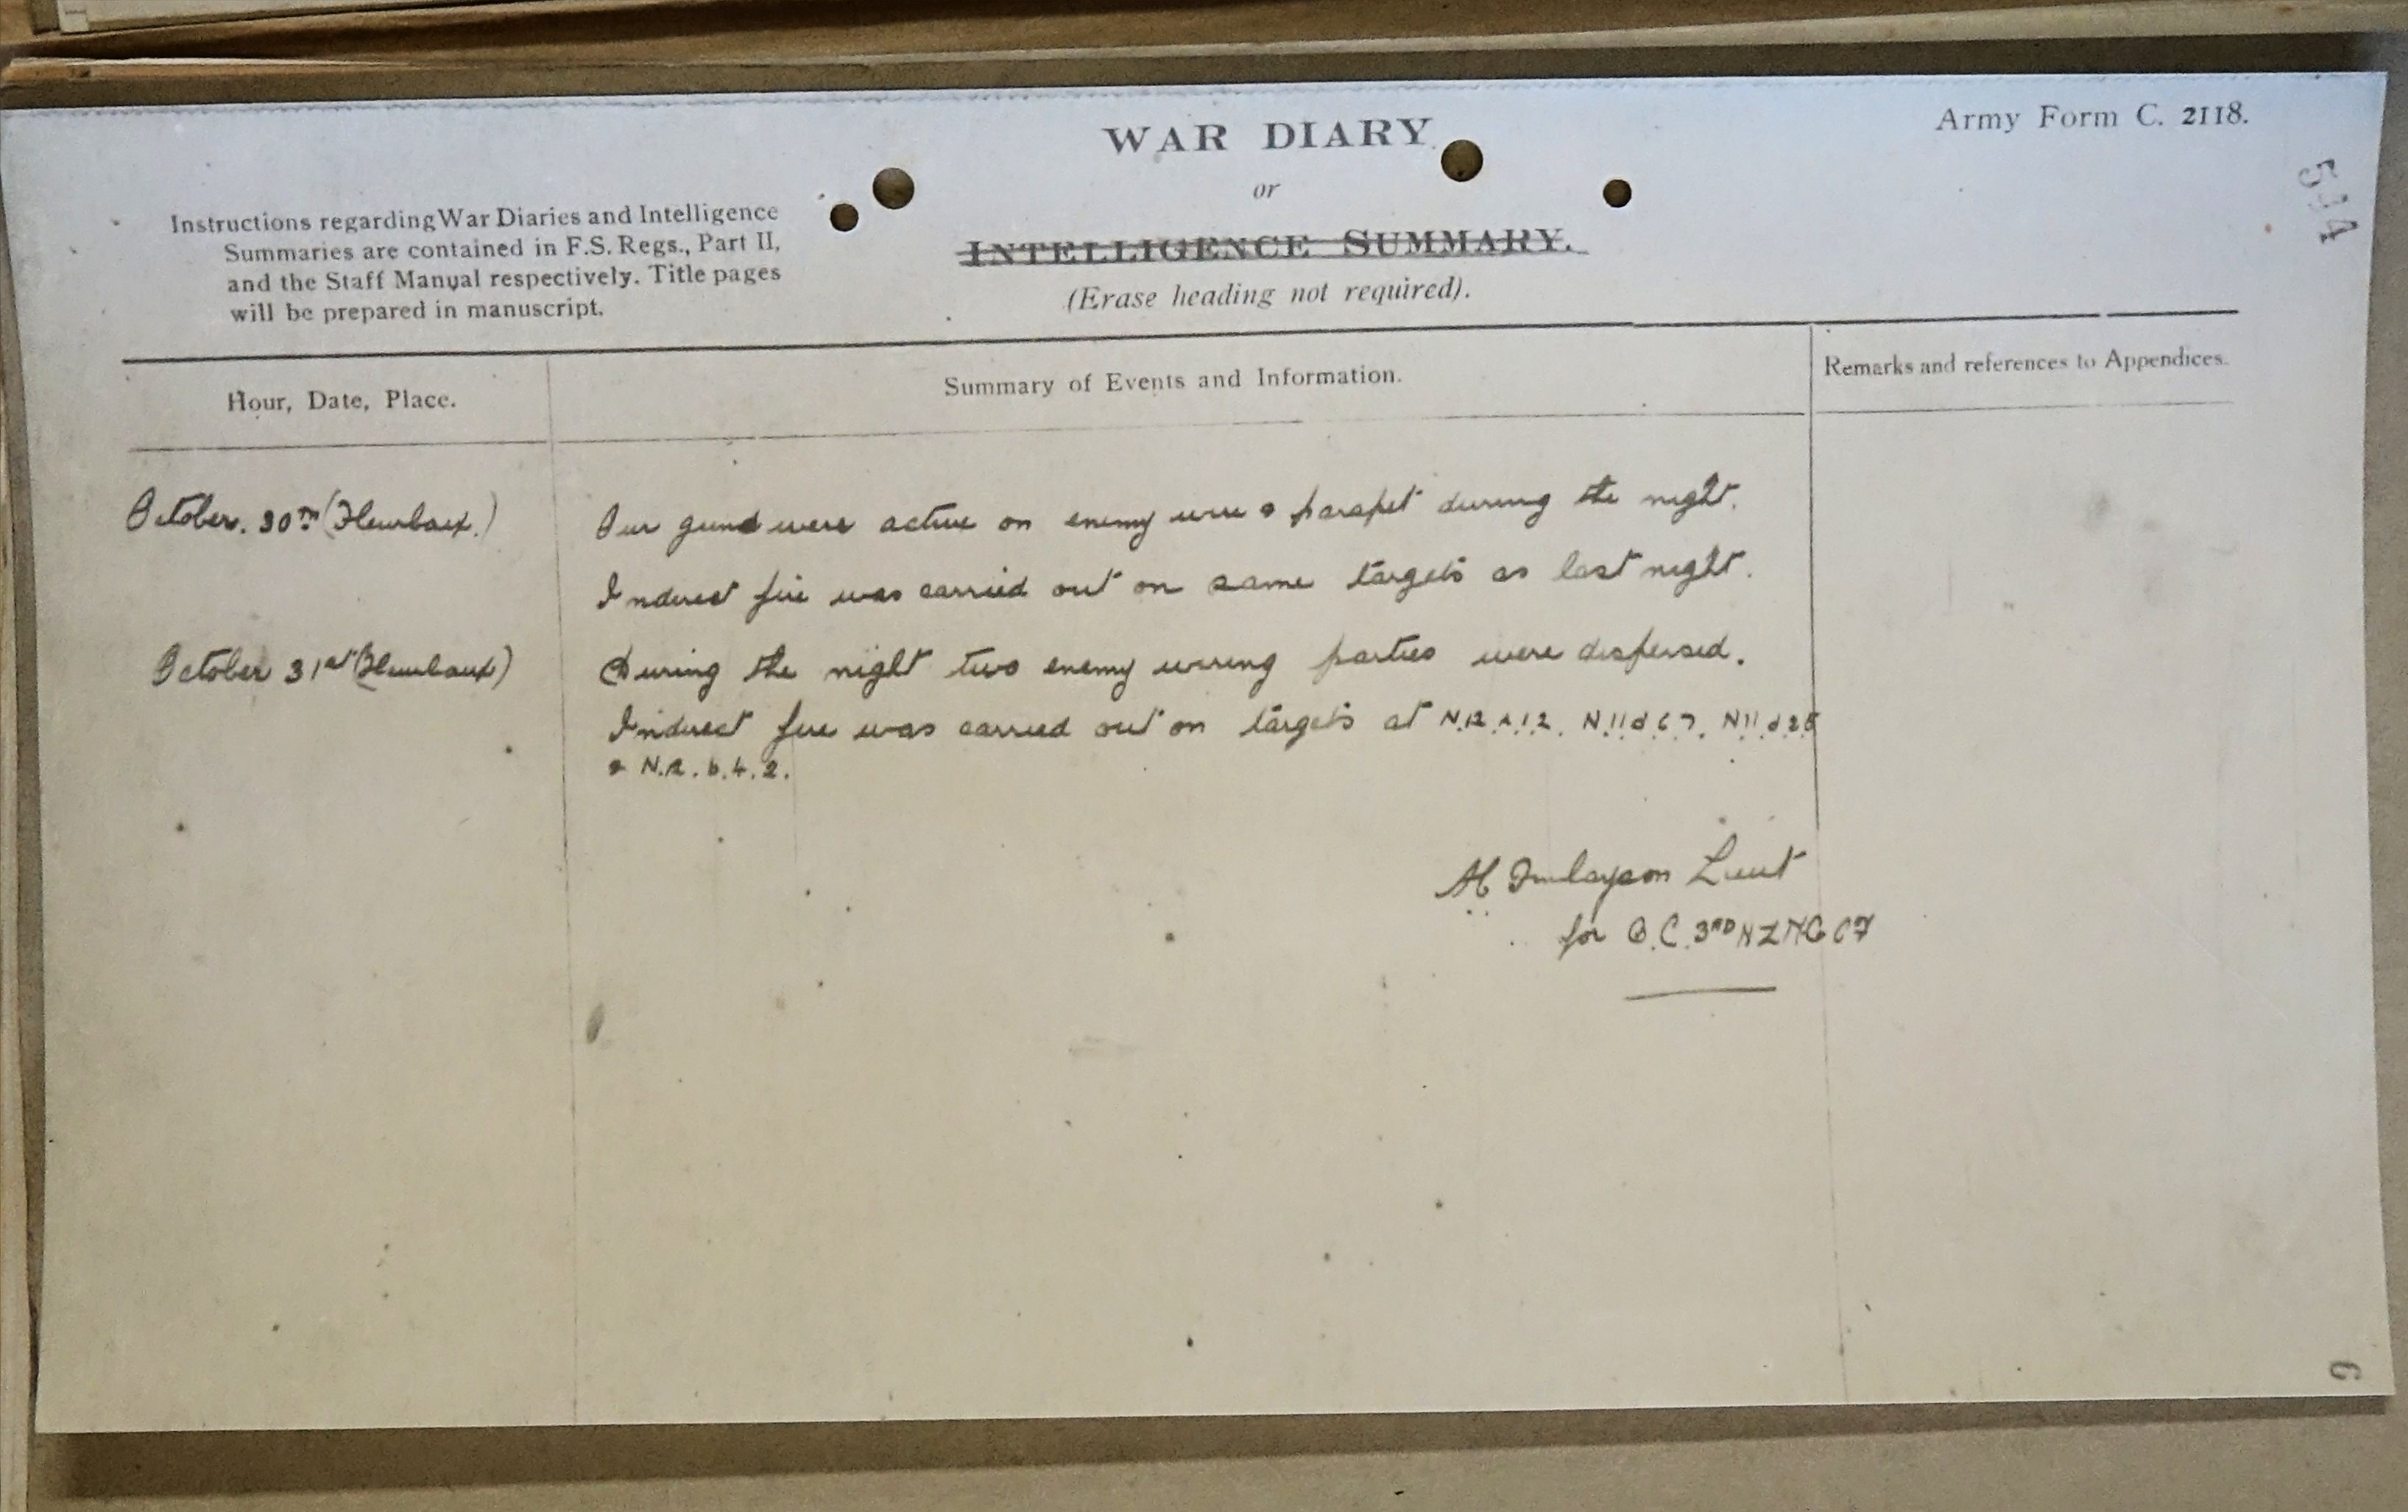 Army Form C. 2118.
WAR DIARY
or
INTELLIGENCE SUMMARY.
(Erase heading not required).
Instructions regarding War Diaries and Intelligence
Summaries are contained in F.S. Regs., Part II,
and the Staff Manual respectively. Title pages
will be prepared in manuscript.
Hour, Date, Place.
Summary of Events and Information.
Remarks and references to Appendices.
October. 30th (Fleurbaix.)
Our guns were active on enemy wire & parapet during the night.
Indirect fire was carried out on same targets as last night.
October 31st (Fleurbaix)
During the night two enemy wiring parties were dispersed.
Indirect fire was carried out on targets at N.12.A.1.2. N.11.d.6.7. N.11.d.2.8
& b.4.2.
Finlayson Lieut
for O.C. 3RD NZMG Coy